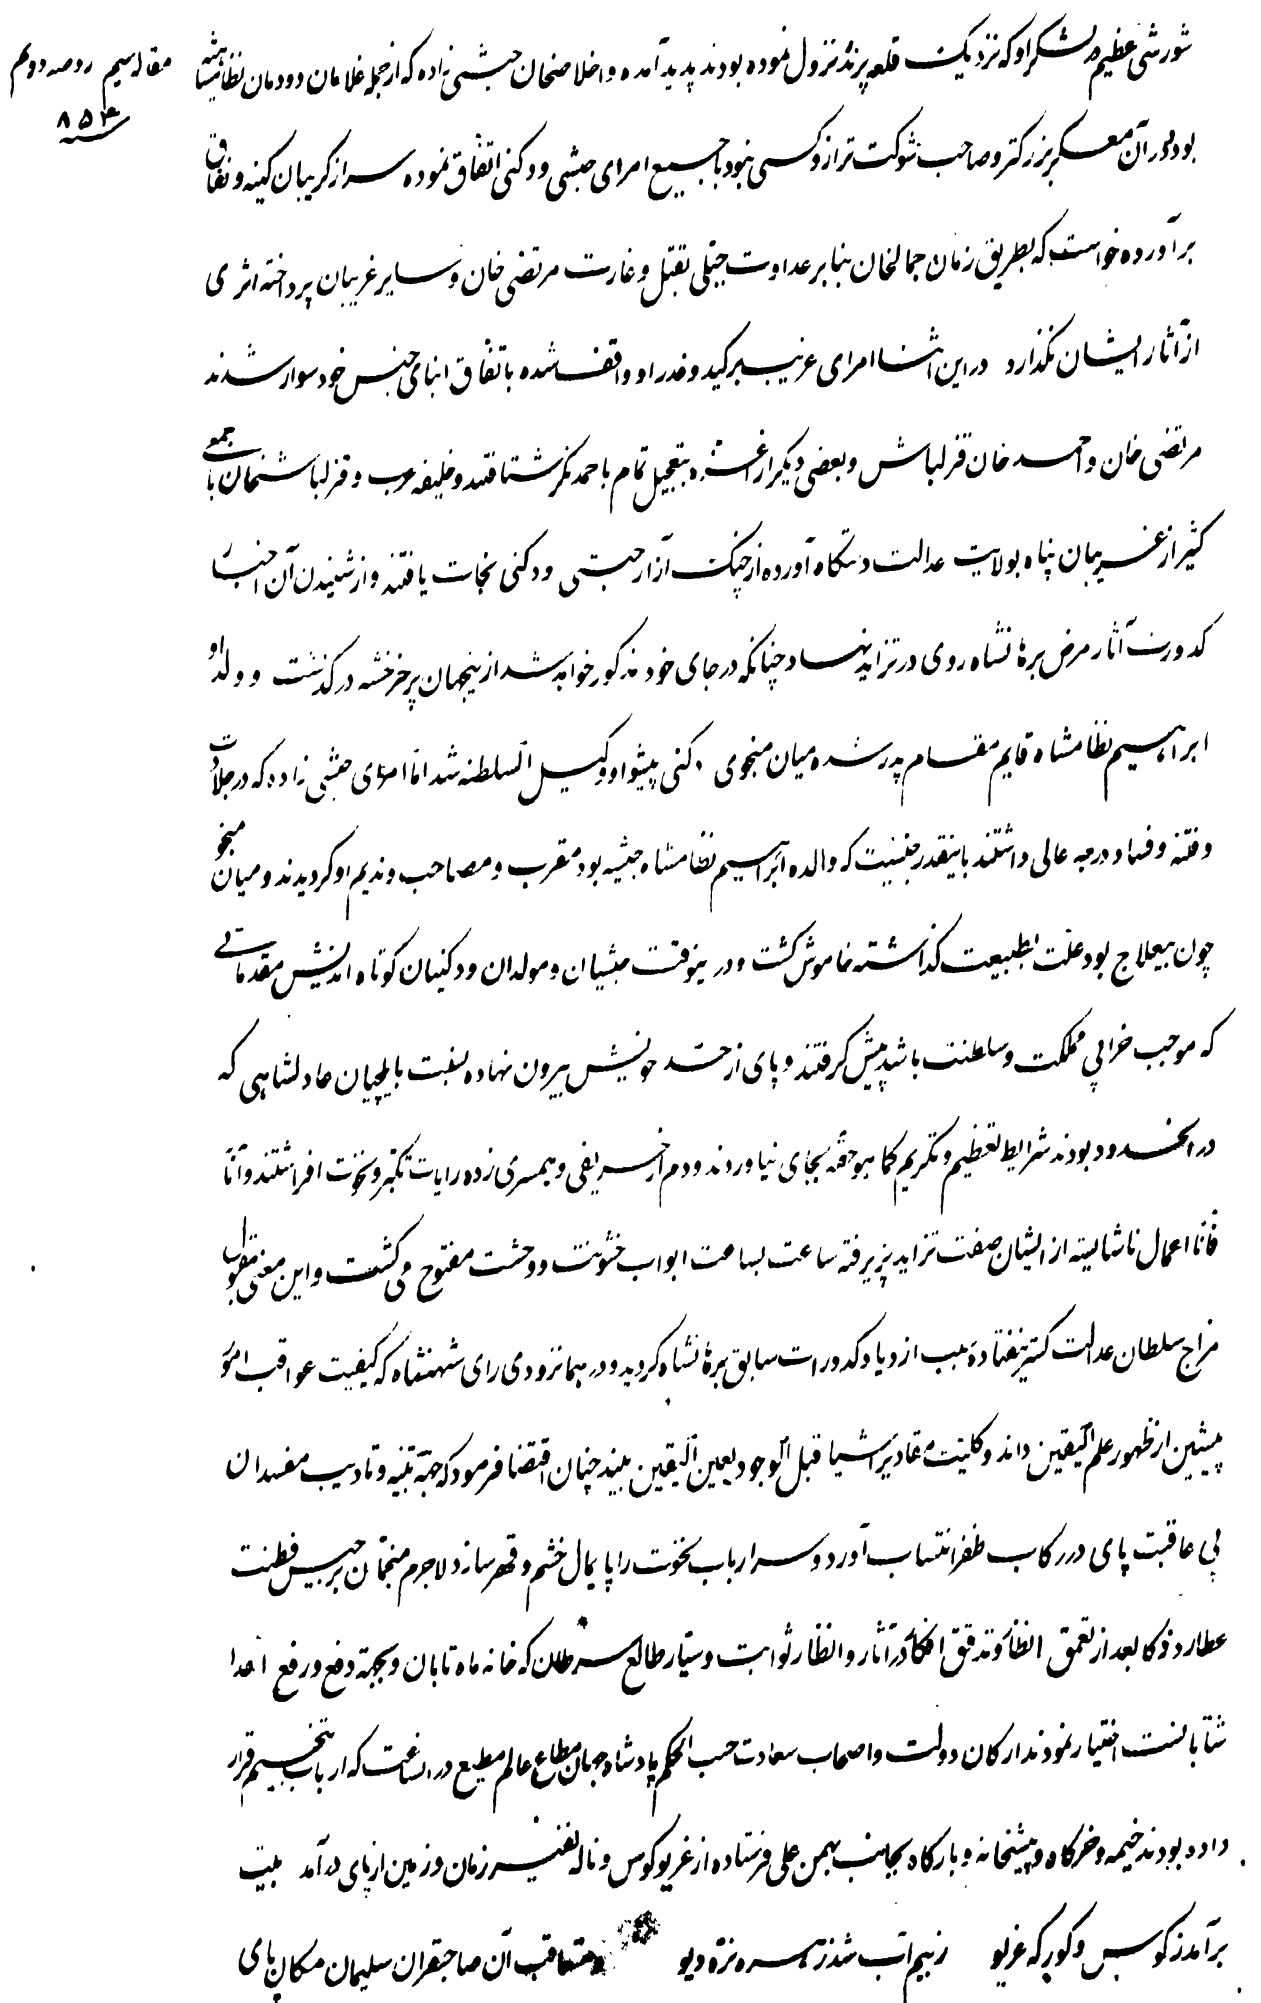 مقاله سیم روضه دوم
۸۵۳
شورشی عظیم در لشکر او که نزدیک قلعه پرنده نزول نموده بودند پدید آمده و اخلاصخان حبشی زاده که از جمله غلامان دودمان نظامشاهیه
بود و در آن معسکر بزرکتر و صاحب شوکت تر ازو کسی نبود با جمیع امرای حبشی و دکنی اتفاق نموده سر از کریبان کینه و نفاق
بر آورده خواست که بطریق زمان جمالخان بنا بر عداوت جبلی بقتل و غارت مرتضی خان و سایر غریبان پرداخته اثری
از آثار ایشان نکذارد در این اثنا امرای غریب بر کید و غدر او واقف شده باتفاق ابنای جنس خود سوار شدند
مرتضی خان و احمد خان قزلباش و بعضی دیکر از اعزه بتعجیل تمام باحمدنکر شتافتند و خلیفه عرب و قزلباشخان با جمعی
کثیر از غریبان پناه بولایت عدالت دستکاه آورده از چنک آزار حبشی و دکنی نجات یافتند و از شنیدن آن اخبار
کدورت آثار مرض برهانشاه روی در تزاید نهاد چنانکه در جای خود مذکور خواهد شد از ینجهان پر خرخشه در کذشت و ولد او
ابراهیم نظامشاه قایم مقام پدر شده میان منجوی دکنی پیشوا و وکیل السلطنه شد اما امرای حبشی زاده که در جلادت
و فتنه و فساد درجه عالی داشتند باینقدر جنسیت که والده ابراهیم نظامشاه حبشیه بود مقرب و مصاحب و ندیم او کردیدند و میان منجو
چون بیعلاج بود علت بطبیعت کذاشته خاموش کشت و درینوقت حبشیان و مولدان و دکنیان کوتاه اندیش مقدماتی
که موجب خرابی مملکت و سلطنت باشد پیش کرفتند و پای از حد خویش بیرون نهاده نسبت بایلچیان عادلشاهی که
در انحدود بودند شرایط تعظیم و تکریم کما هو حقه بجای نیاوردند و دم از حریفی و همسری زده رایات تکبر و نخوت افراشتند و آنا
فانا اعمال ناشایسته از ایشان صفت تزاید پذیرفته ساعت بساعت ابواب خشونت و وحشت مفتوح می کشت و این معنی مقبول
مزاج سلطان عدالت کستر نیفتاده سبب ازدیاد کدورات سابق برهانشاه کردید و در همانزودی رای شهنشاه که کیفیت عواقب امور
پیشین از ظهور علم الیقین داند و کلیت مقادیر اشیا قبل الوجود بعین الیقین بیند چنان اقتضا فرمود که جهة تنبیه و تادیب مفسدان
بی عاقبت پای در رکاب ظفر انتساب آورد و سر ارباب نخوت را پایمال خشم و قهر سازد لاجرم منجمان برجیس فطنت
عطارد ذکا بعد از تعمق انظار و تدقق افکار در آثار و انظار ثوابت و سیار طالع سرطان که خانه ماه تابان و بجهة دفع و رفع اعدا
شتابانست اختیار نمودند ارکان دولت و اصحاب سعادت حسب الحکم پادشاه جهان مطاع عالم مطیع در انساعت که ارباب تنجیم قرار
داده بودند خیمه و خرکاه و پیشخانه و بارکاه بجانب بهمن علی فرستاده از غریو کوس و ناله نفیر زمان و زمین از پای در آمد بیت
برآمد ز کوس و کورکه غریو زبیم آب شد زهره نره دیو متعاقب آن صاحبقران سلیمان مکان پای